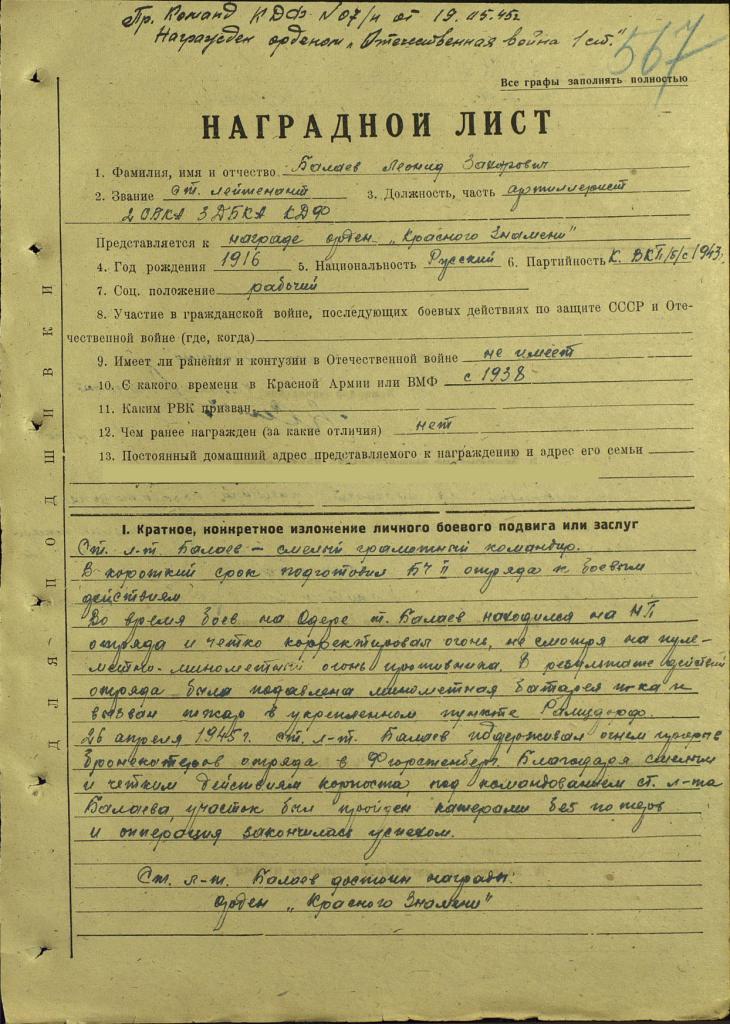 Пр. Команд КДФ №07/н от 19.05.45г
Награжден орденом „Отечественная война 1 ст."
567
Все графы заполнять полностью
НАГРАДНОЙ ЛИСТ
1. Фамилия, имя и отчество Балаев Леонид Захарович
2. Звание ст. лейтенант 3. Должность, часть артиллерист
2 ОБКА 3 ДБКА КДФ
Представляется к награде орден „Красного Знамени"
4. Год рождения 1916 5. Национальность Русский 6. Партийность К. ВКП/б/ с 1943г.
7. Соц. положение рабочий
8. Участие в гражданской войне, последующих боевых действиях по защите СССР и Оте-
чественной войне (где, когда)
9. Имеет ли ранения и контузии в Отечественной войне не имеет
10. С какого времени в Красной Армии или ВМФ с 1938
11. Каким РВК призван
12. Чем ранее награжден (за какие отличия) нет
13. Постоянный домашний адрес представляемого к награждению и адрес его семьи
I. Краткое, конкретное изложение личного боевого подвига или заслуг
Ст. л-т. Балаев – смелый грамотный командир.
В короткий срок подготовил БЧ II отряда к боевым
действиям
Во время боев на Одере т. Балаев находился на НП
отряда и четко корректировал огонь, не смотря на пуле-
метно-минометный огонь противника. В результате действий
отряда была подавлена минометная батарея пр-ка и
вызван пожар в укрепленном пункте
26 апреля 1945г. ст. л-т. Балаев поддерживал огнем прорыв
бронекатеров отряда в Фюрстенберг. Благодаря смелым
и четким действиям корпоста, под командованием ст. л-та
Балаева, участок был пройден катерами без потерь
и опперация закончилась успехом.
Ст. л-т. Балаев достоин награды:
орден „Красного Знамени"
ДЛЯ ПОДШИВКИ